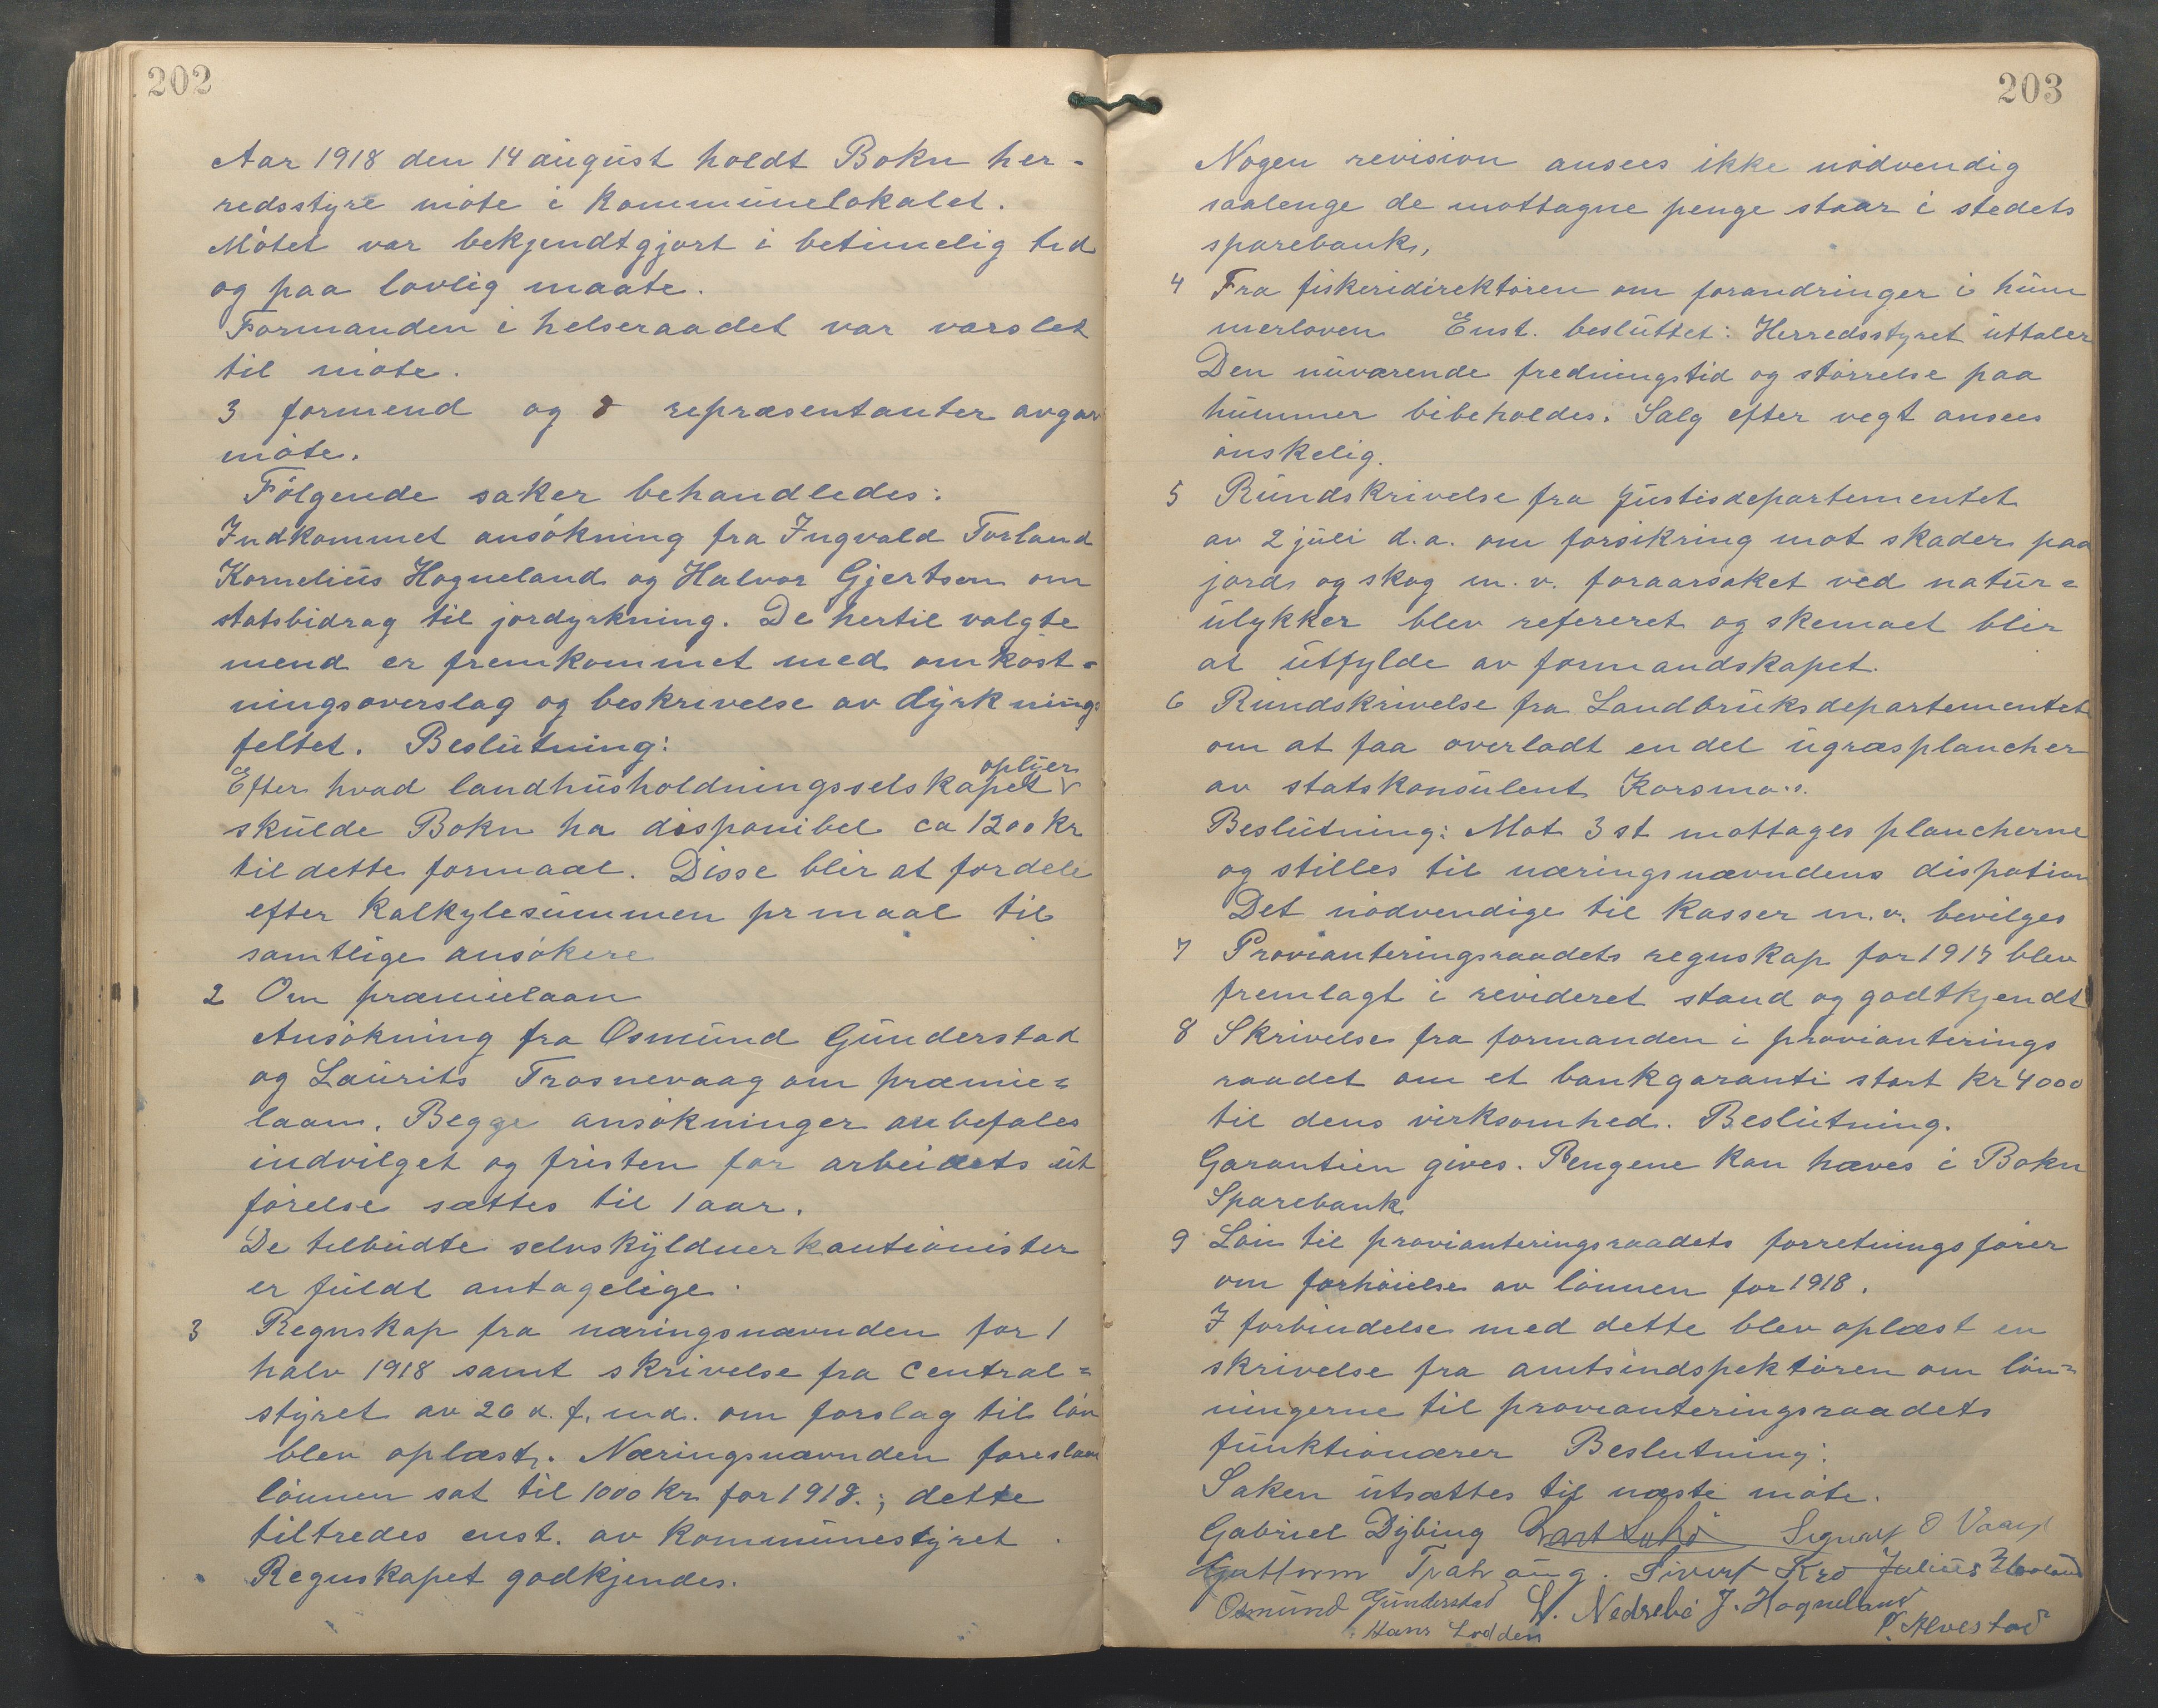 202
Aar 1918 den 14 august holdt Bokn her-
redsstyre møte i Kommunelokalet.
Møtet var bekjendtgjort i betimelig tid
og paa lovlig maate.
Formanden i helseraadet var varslet
til møte.
3 formend og 8 repræsentanter avgav
møte.
Følgende saker behandledes:
Indkommet ansøkning fra Ingvald Torland
Kornelius Hogneland og Halvor Gjertsen om
statsbidrag til jordyrkning. De hertil valgte
mend er fremkommet med omkost-
ningsoverslag og beskrivelse av dyrknings
feltet. Beslutning:
oplyser
Efter hvad landhusholdningsselskapet v
skulde Bokn ha disponibel ca 1200 kr
til dette formaal. Disse blir at fordele
efter Kalkylesummen pr maal til
samtlige ansøkere
2 Om præmielaan
Ansøkning fra Osmund Gunderstad
og Laurits Trosnevaag om præmie=
laan. Begge ansøkninger anbefales
indvilget og fristen for arbeidets ut
førelse sættes til 1 aar.
De tilbudte selvskyldnerkautionister
er fuldt antagelige.
3 Regnskap fra næringsnævnden for 1
halv 1918 samt skrivelse fra Central=
styret av 26 d. f. md. om forslag til løn
blev oplæst. Næringsnævnden foreslaar
lønnen sat til 1000 kr for 1918.; dette
tiltredes enst. av Kommunestyret.
Regnskapet godkjendes.
203
Nogen revision ansees ikke nødvendig
saalenge de mottagne penge staar i stedets
sparebank,
4 Fra fiskeridirektøren om forandringer i hum
merloven Enst. besluttet: Herredsstyret uttaler
Den nuværende fredningstid og størrelse paa
hummer bibeholdes. Salg efter vegt ansees
ønskelig.
5 Rundskrivelse fra Justisdepartementet
av 2 juli d.a. om forsikring mot skader paa
jord og skog m.v. foraarsaket ved natur=
ulykker blev refereret og skemaet blir
at utfylde av formandskapet.
6 Rundskrivelse fra Landbruksdepartementet
om at faa overladt en del ugræsplancher
av statskonsulent Korsmo.
Beslutning: Mot 3 st mottages plancherne
og stilles til næringsnævndens dispotion
Det nødvendige til Kasser m.v. bevilges
7 Provianteringsraadets regnskap for 1917 blev
fremlagt i revideret stand og godtkjendt
8 Skrivelse fra formanden i provianterings
raadet om et bankgaranti stort Kr 4000
til dens virksomhed. Beslutning.
Garantien gives. Pengene kan hæves i Bokn
Sparebank
9 Løn til provianteringsraadets forretningsfører
om forhøielse av lønnen for 1918.
I forbindelse med dette blev oplæst en
skrivelse fra amtsindspektøren om løn=
ningerne til provianteringsraadets
funktionærer Beslutning:
Saken utsættes til næste møte.
Gabriel Dybing Sigvart O Vaag
Guttorm Sivert Kro Julius
Osmund Gunderstad Nedrebø J. Hogneland
Hans Lodden P. Alvestad